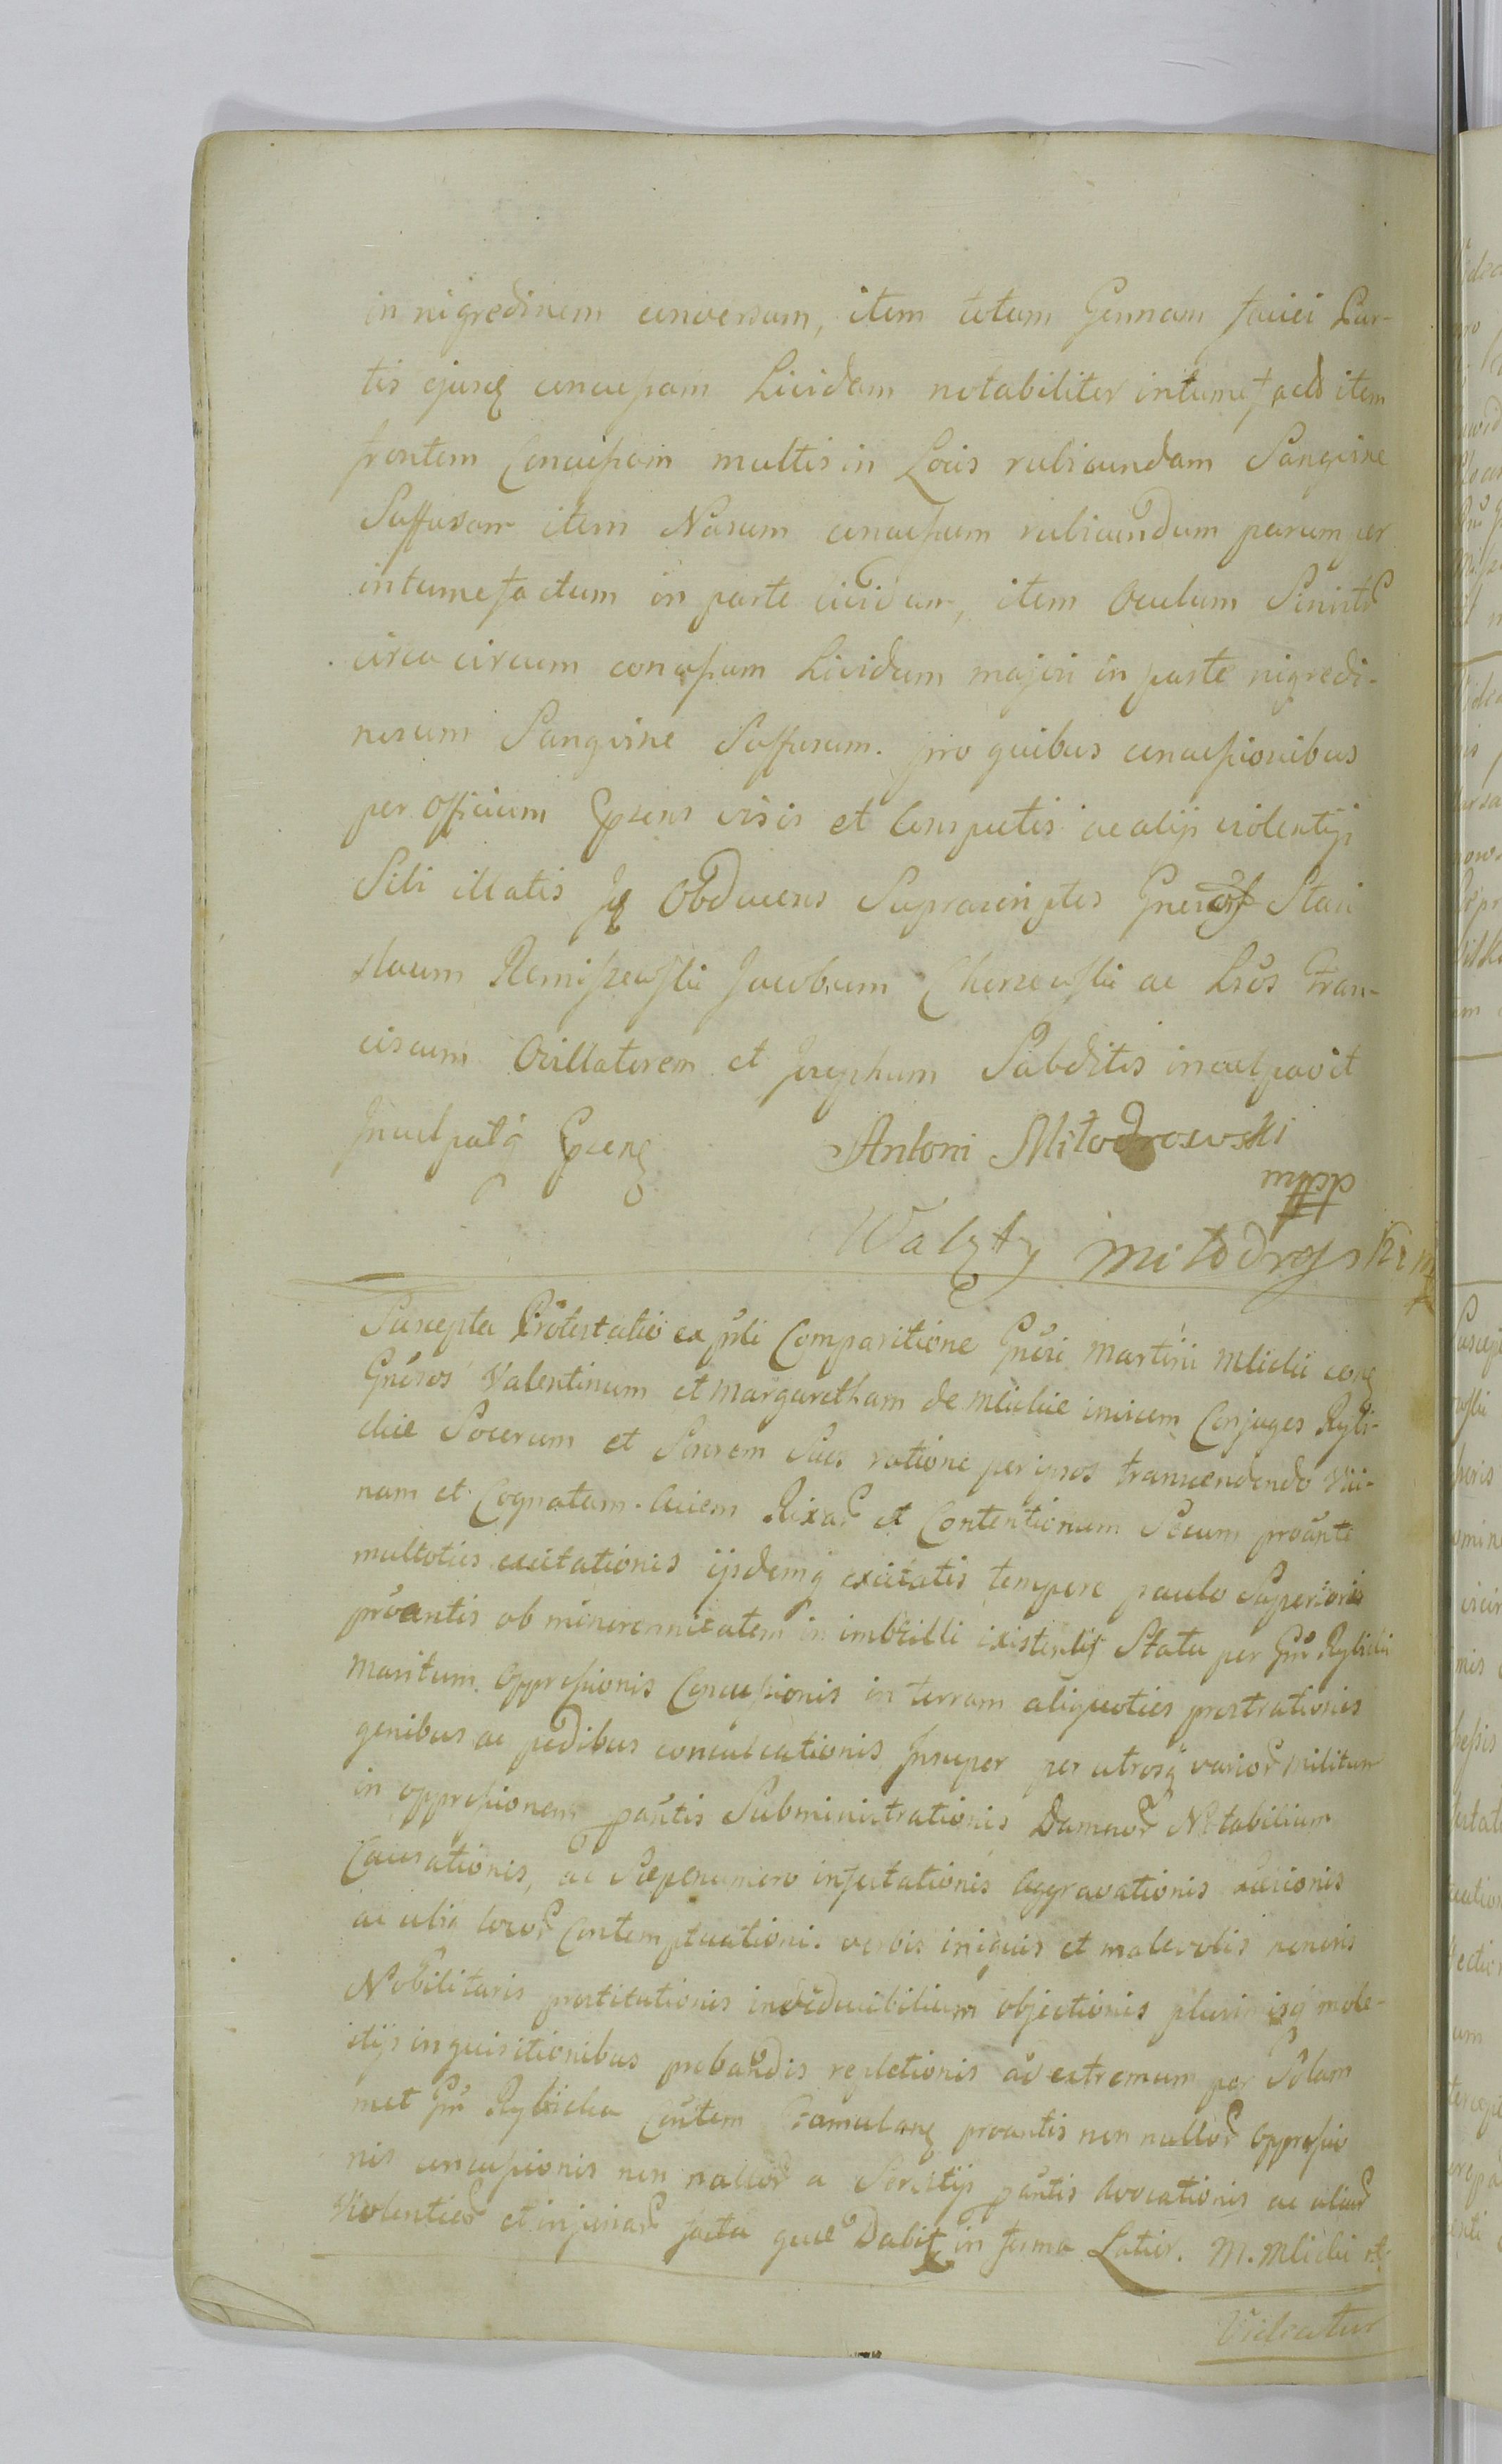 in nigredinem conversam, item totam Gennam faciei Par-
tis ejusq concussam Lividam notabiliter intumefactā item
frontem Concussam multis in Locis rubicundam Sangvine
Suffusam item Nasum concussum rubicundum parumper
intumefactum in parte lividum, item Oculum Sinistr
circa circum concussum Lividum majori in parte nigredi-
nosum Sangvine Suffusum. pro quibus concussionibus
per Officium visis et Conspectis ac alijs violentijs
Sibi illatis Obducens Suprascriptos Gnrosos Stani
slaum Remiszewski Jacobum Chorzewski ac Lros Fran-
ciscum Ovillatorem et Josephum Subditos inculpavit
Inculpatq
Antoni Miłodrowski
mpp
Walęty miłodroski
Suscepta Protestatio ex pnli Comparitione Gnrsi Martini Mlicki cong
Gnrsos Valentinum et Margaretham de Mlickie invicem Conjuges Rybi-
ckie Socerum et Sororem Suos ratione per ipsos transcendendo Vici-
nam et Cognatam Aciem Rixar et Contentionum Secum proante
multoties excitationis ijsdemq excitatis tempore paulo Superiori
proantis ob minorennitatem in imbecilli existentis Statu per Gnr Rybicki
Maritum Oppressionis Concussionis in terram aliquoties prostrationis
genibus ac pedibus conculcationis Insuper per utrosq varior militum
in oppressionem pantis Subministrationis Damnor Notabilium
Causationis, ac Saepenumero infestationis Aggravationis
ac alior Contemptuationis verbis iniquis et malevolis honoris
Nobilitaris prostitutionis indeducibilium objectionis plurimisq mole-
stijs inquisitionibus probandis repletionis ad extremum per Solam
met Gnr Rybicka Cantem Famulanq proantis non nullor Oppressio
nis concussionis non nullor a Servitijs pantis Avocationis ac alior
Violentiar et injuriar facta quae Dabit in forma Latior. M. Mlicki
Videatur